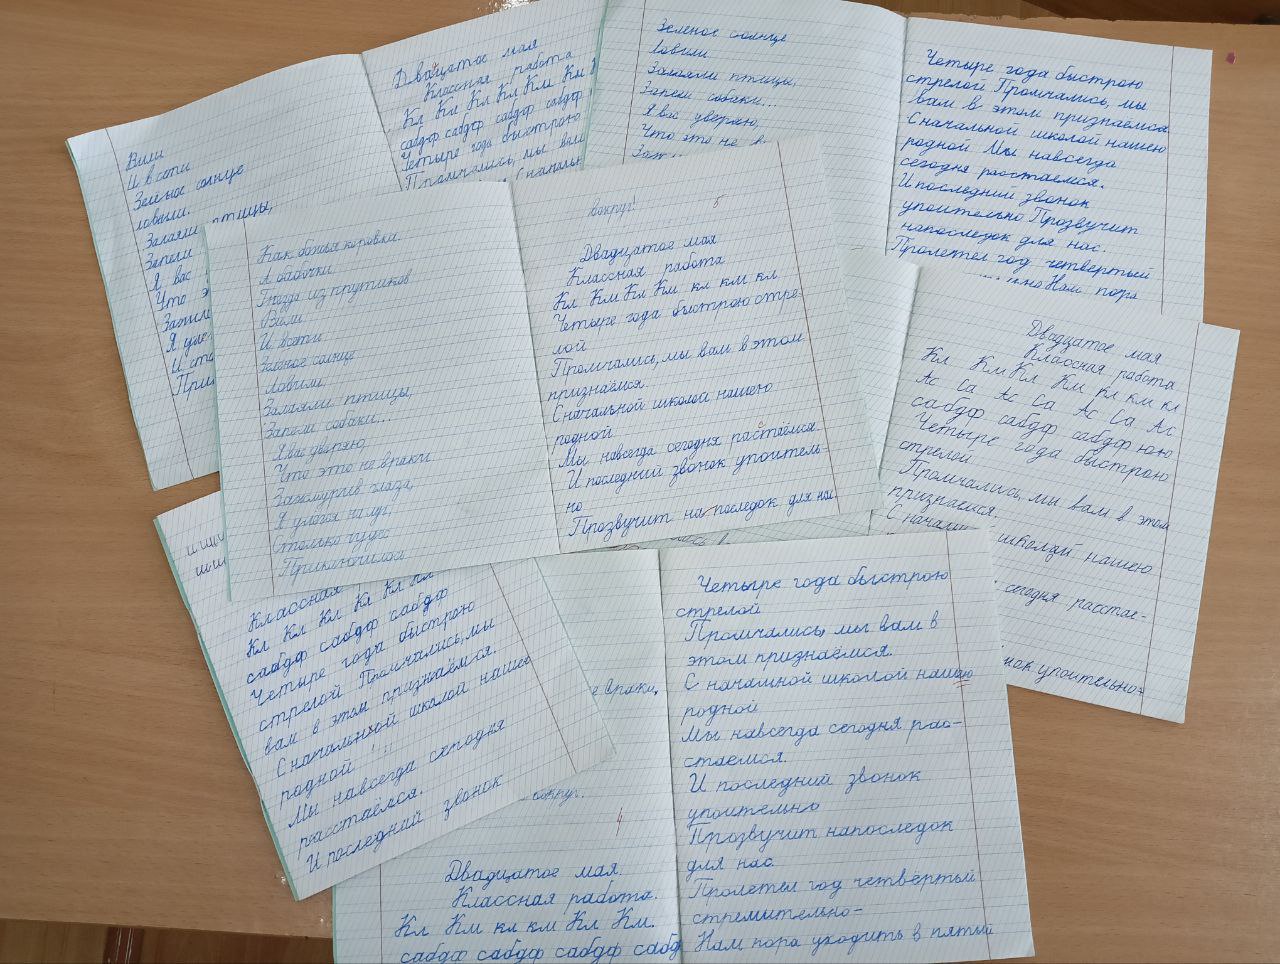 Вили
И в сети
Зелёное солнце
ловили.
Залаяли птицы,
Запели
Я вас
Что э
Зажм
И ста
При
Двадцатое мая
Классная работа
Кл Кл Кл Кл Кл Км К
сабдф сабдф сабдф сабдф
Четыре года быстрою
Промчались, мы вам
Зелёное солнце
Ловили.
Залаяли птицы,
Запели собаки...
Я вас уверяю,
Что это не в
Заж
Четыре года быстрою
стрелой Промчались, мы
вам в этом признаёмся
С начальной школой нашею
родной Мы навсегда
сегодня расстаемся.
И последний звонок
упоительно Прозвучит
напоследок для нас.
Пролетел год четвертый
Нам пора
Как божья коровка.
А бабочки
Гнёзда из прутиков
Вили
И в сети
Зеленое солнце
Ловили.
Залаяли птицы,
Запели собаки...
Я вас уверяю,
Что это не враки
Зажмурив глаза,
Я улегся на луг,
Столько чудес
Приключилось
вокруг!
5
Двадцатое мая
Классная работа
Кл Км Кл Км кл км кл
Четыре года быстрою стре-
лой
Промчались, мы вам в этом
признаёмся.
С начальной школой нашею
родной
Мы навсегда сегодня растаемся.
И последний звонок упоитель-
но
Прозвучит на последок для нас
Двадцатое мая
Классная работа
Кл Км Кл Км кл км кл
Ас Са Ас Са Ас Са Ас
сабдф сабдф сабдф юю
Четыре года быстрою
стрелой
Промчались, мы вам в этом
признаемся.
С начальн школой нашею
сегодня расстае-
нок упоительно-
Классная
Кл Кл Кл Кл Кл Кл
сабдф сабдф сабдф
Четыре года быстрою
стрелой Промчались, мы
вам в этом признаёмся.
С начальной школой нашею
родной
Мы навсегда сегодня
расстаёмся.
И последний звонок
е враки,
вокруг.
4
Двадцатое мая.
Классная работа.
Кл Км кл км Кл Км.
сабдф сабдф сабдф сабд
Четыре года быстрою
стрелой
Промчались, мы вам в
этом признаёмся.
С начальной школой нашею
родной
Мы навсегда сегодня рас-
стаемся.
И последний звонок
упоительно
Прозвучит напоследок
для нас.
Пролетел год четвёртый
стремительно-
Нам пора уходить в пятый